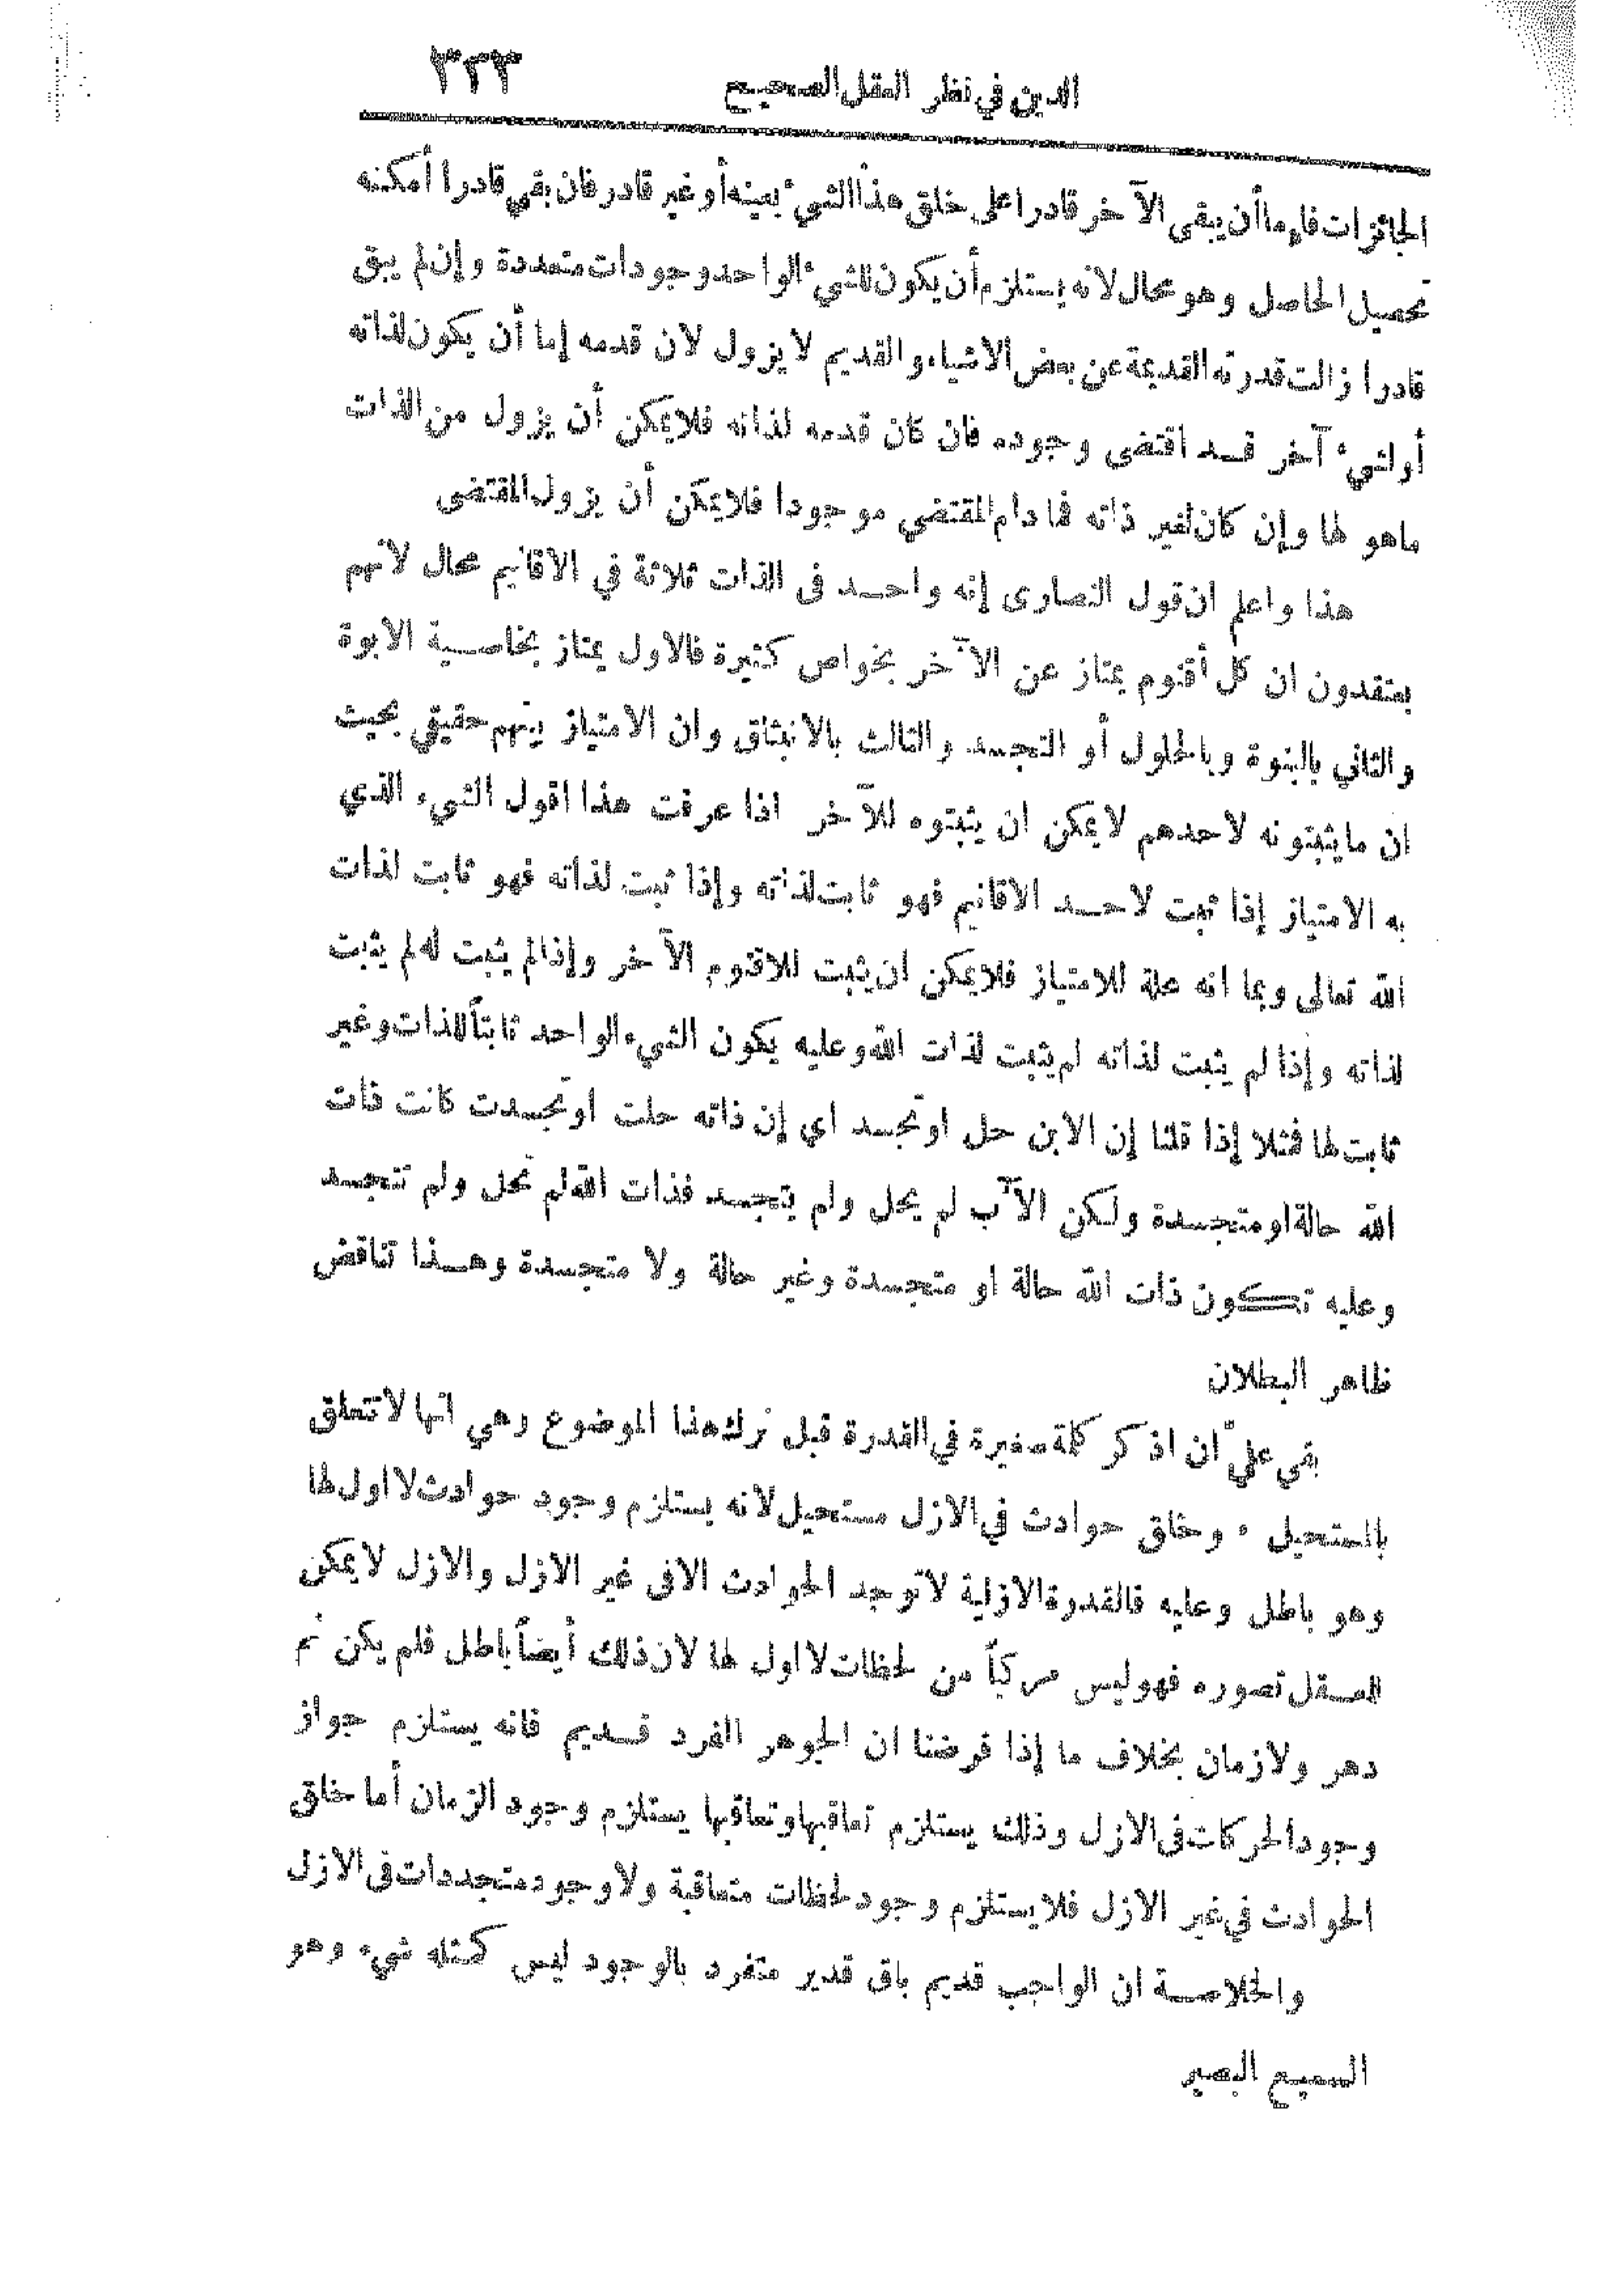 الدين في نظر العقل الصحيح ٣٢٣
الجائزات فإما أن يبقى الآخر قادرا على خلق هذا الشيء بعينه أو غير قادر فان بقي قادرا أمكنه
تحصيل الحاصل وهو محال لانه يستلزم أن يكون للشيء الواحد وجودات متعددة وإن لم يبق
قادرا زالت قدرته القديمة عن بعض الاشياء والقديم لا يزول لان قدمه إما أن يكون لذاته
أو لشيء آخر قد اقتضى وجوده فان كان قدمه لذاته فلا يمكن أن يزول من الذات
ماهو لها وإن كان لغير ذاته فما دام المقتضي موجودا فلا يمكن أن يزول المقتضى
هذا واعلم ان قول النصارى إنه واحد فى الذات ثلاثة في الاقانيم محال لأنهم
يعتقدون ان كل أقنوم يمتاز عن الآخر بخواص كثيرة فالاول يمتاز بخاصية الابوة
والثاني بالبنوة وبالحلول أو التجسد والثالث بالانبثاق وان الامتياز بينهم حقيقي بحيث
ان ما يثبتونه لاحدهم لا يمكن ان يثبتوه للآخر اذا عرفت هذا اقول الشيء الذي
به الامتياز إذا ثبت لاحد الاقانيم فهو ثابت لذاته وإذا ثبت لذاته فهو ثابت لذات
الله تعالى وبما انه علة للامتياز فلا يمكن ان يثبت للاقنوم الآخر وإذا لم يثبت له لم يثبت
لذاته وإذا لم يثبت لذاته لم يثبت لذات الله وعليه يكون الشيء الواحد ثابتاً للذات وغير
ثابت لها فمثلا إذا قلنا إن الابن حل او تجسد اي إن ذاته حلت او تجسدت كانت ذات
الله حالة او متجسدة ولكن الآب لم يحل ولم يتجسد فذات الله لم تحل ولم تتجسد
وعليه تكون ذات الله حالة او متجسدة وغير حالة ولا متجسدة وهذا تناقض
ظاهر البطلان
بقي عليّ ان اذكر كلمة صغيرة في القدرة قبل ترك هذا الموضوع وهي انها لا تتعلق
بالمستحيل ٠ وخلق حوادث في الازل مستحيل لانه يستلزم وجود حوادث لا اول لها
وهو باطل وعليه فالقدرة الازلية لا توجد الحوادث الا فى غير الازل والازل لا يمكن
للعقل تصوره فهو ليس مركباً من لحظات لا اول لها لان ذلك أيضاً باطل فلم يكن ثم
دهر ولا زمان بخلاف ما إذا فرضنا ان الجوهر الفرد قديم فانه يستلزم جواز
وجود الحركات فى الازل وذلك يستلزم تعاقبها وتعاقبها يستلزم وجود الزمان أما خلق
الحوادث في غير الازل فلا يستلزم وجود لحظات متعاقبة ولا وجود متجددات فى الازل
والخلاصة ان الواجب قديم باق قدير متفرد بالوجود ليس كمثله شيء وهو
السميع البصير